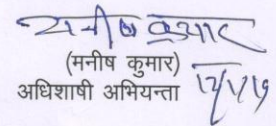 मनीष कुमार
(मनीष कुमार)
अधिशाषी अभियन्ता